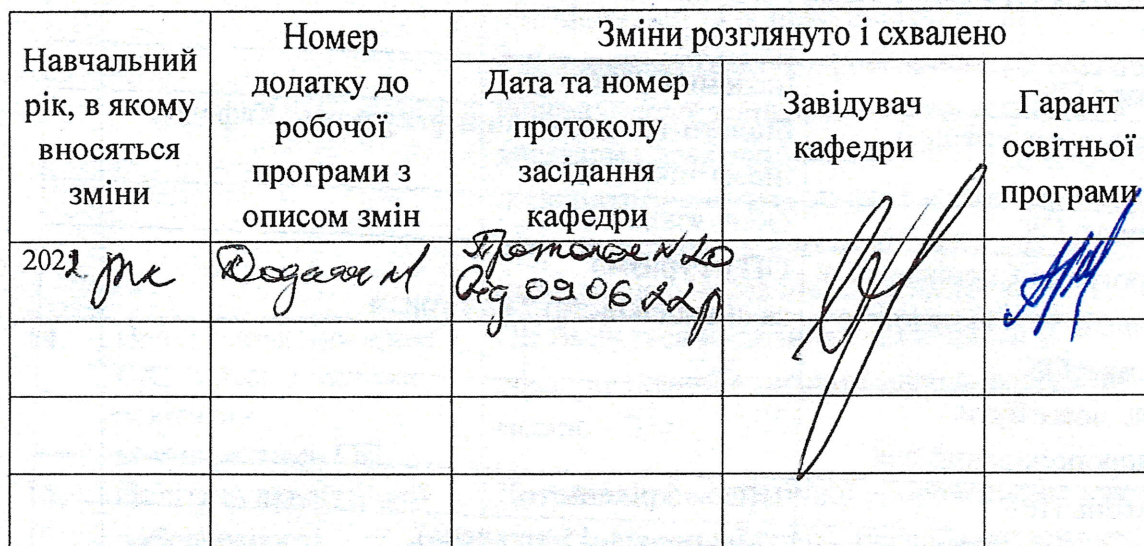 Навчальний
рік, в якому
вносяться
зміни
Номер
додатку до
робочої
програми з
описом змін
Зміни розглянуто і схвалено
Дата та номер
протоколу
засідання
кафедри
Завідувач
кафедри
Гарант
освітньої
програми
2022 рік
Додаток №1
Протокол №20
від 09.06.22р